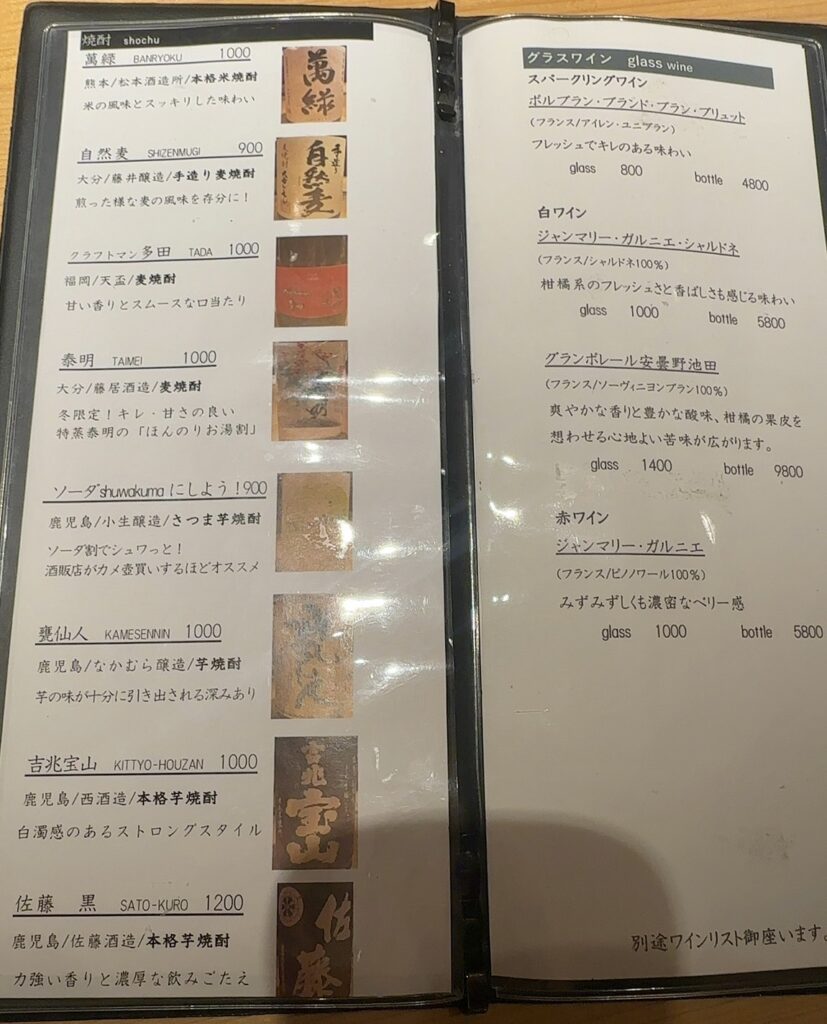 焼酎 shochu
萬緑 BANRYOKU 1000
熊本/松本酒造所/本格米焼酎
米の風味とスッキリした味わい
萬緑
自然麦 SHIZENMUGI 900
大分/藤井醸造/手造り麦焼酎
煎った様な麦の風味を存分に！
手造り
自然麦
クラフトマン多田 TADA 1000
福岡/天盃/麦焼酎
甘い香りとスムースな口当たり
泰明 TAIMEI 1000
大分/藤居酒造/麦焼酎
冬限定！キレ・甘さの良い
特蒸泰明の「ほんのりお湯割」
ソーダshuwakumaにしよう！900
鹿児島/小生醸造/さつま芋焼酎
ソーダ割でシュワっと！
酒販店がカメ壺買いするほどオススメ
甕仙人 KAMESENNIN 1000
鹿児島/なかむら醸造/芋焼酎
芋の味が十分に引き出される深みあり
吉兆宝山 KITTYO-HOUZAN 1000
鹿児島/西酒造/本格芋焼酎
白濁感のあるストロングスタイル
吉兆
宝山
佐藤 黒 SATO-KURO 1200
鹿児島/佐藤酒造/本格芋焼酎
力強い香りと濃厚な飲みごたえ
佐藤
グラスワイン glass wine
スパークリングワイン
ボルブラン・ブランド・ブラン・ブリュット
(フランス/アイレン・ユニブラン)
フレッシュでキレのある味わい
glass 800 bottle 4800
白ワイン
ジャンマリー・ガルニエ・シャルドネ
(フランス/シャルドネ100%)
柑橘系のフレッシュさと香ばしさも感じる味わい
glass 1000 bottle 5800
グランポレール安曇野池田
(フランス/ソーヴィニヨンブラン100%)
爽やかな香りと豊かな酸味、柑橘の果皮を
想わせる心地よい苦味が広がります。
glass 1400 bottle 9800
赤ワイン
ジャンマリー・ガルニエ
(フランス/ピノノワール100%)
みずみずしくも濃密なベリー感
glass 1000 bottle 5800
別途ワインリスト御座います。